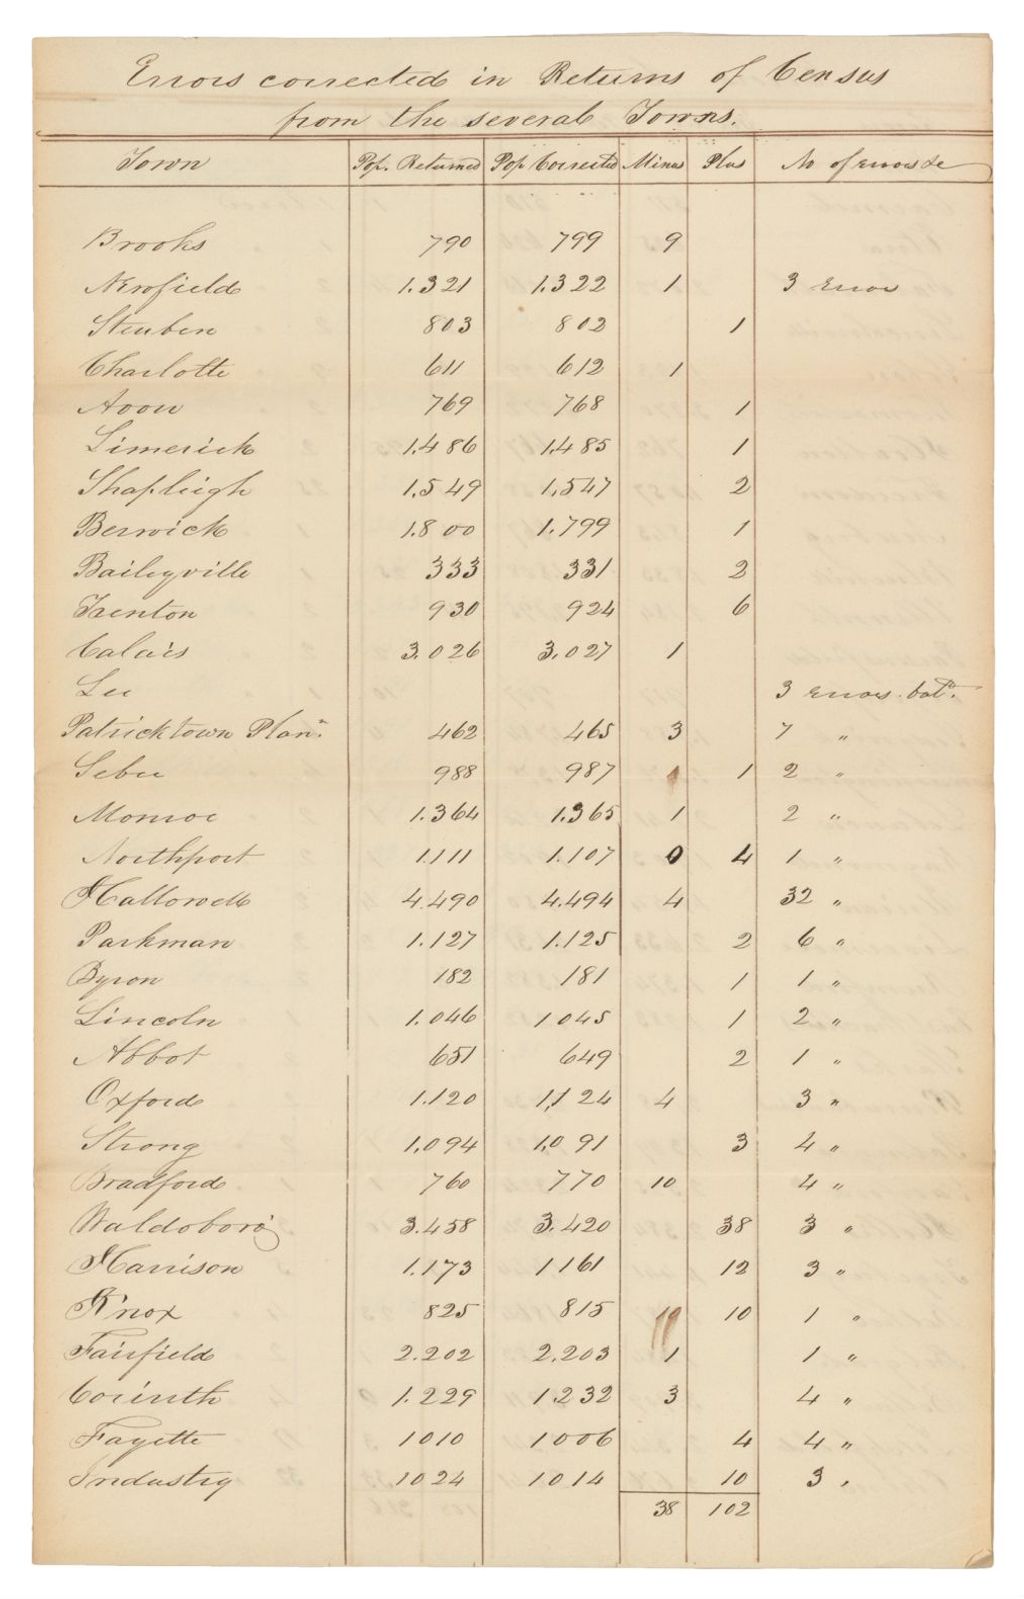 Errors corrected in Returns of Census
from the several Towns.
Town Pop. Returned Pop Corrected Minus Plus No of errors &c
Brooks 790 799 9
Newfield 1.321 1.322 1 3 Error
Steuben 803 802 1
Charlotte 611 612 1
Avon 769 768 1
Limerick 1.486 1.485 1
Shapleigh 1.549 1.547 2
Berwick 1.800 1.799 1
Baileyville 333 331 2
Trenton 930 924 6
Calais 3.026 3.027 1
Lee 3 errors
Patricktown Plan. 462 465 3 7 "
Sebec 988 987 1 2 "
Monroe 1.364 1.365 1 2 "
Northport 1.111 1.107 0 4 1 "
Hallowell 4.490 4.494 4 32 "
Parkman 1.127 1.125 2 6 "
Byron 182 181 1 1 "
Lincoln 1.046 1045 1 2 "
Abbot 651 649 2 1 "
Oxford 1.120 1,124 4 3 "
Strong 1,094 1,091 3 4 "
Bradford 760 770 10 4 "
Waldoboro' 3.458 3.420 38 3 "
Harrison 1.173 1161 12 3 "
Knox 825 815 10 1 "
Fairfield 2.202 2,203 1 1 "
Corinth 1.229 1.232 3 4 "
Fayette 1010 1006 4 4 "
Industry 1024 1014 10 3 "
38 102